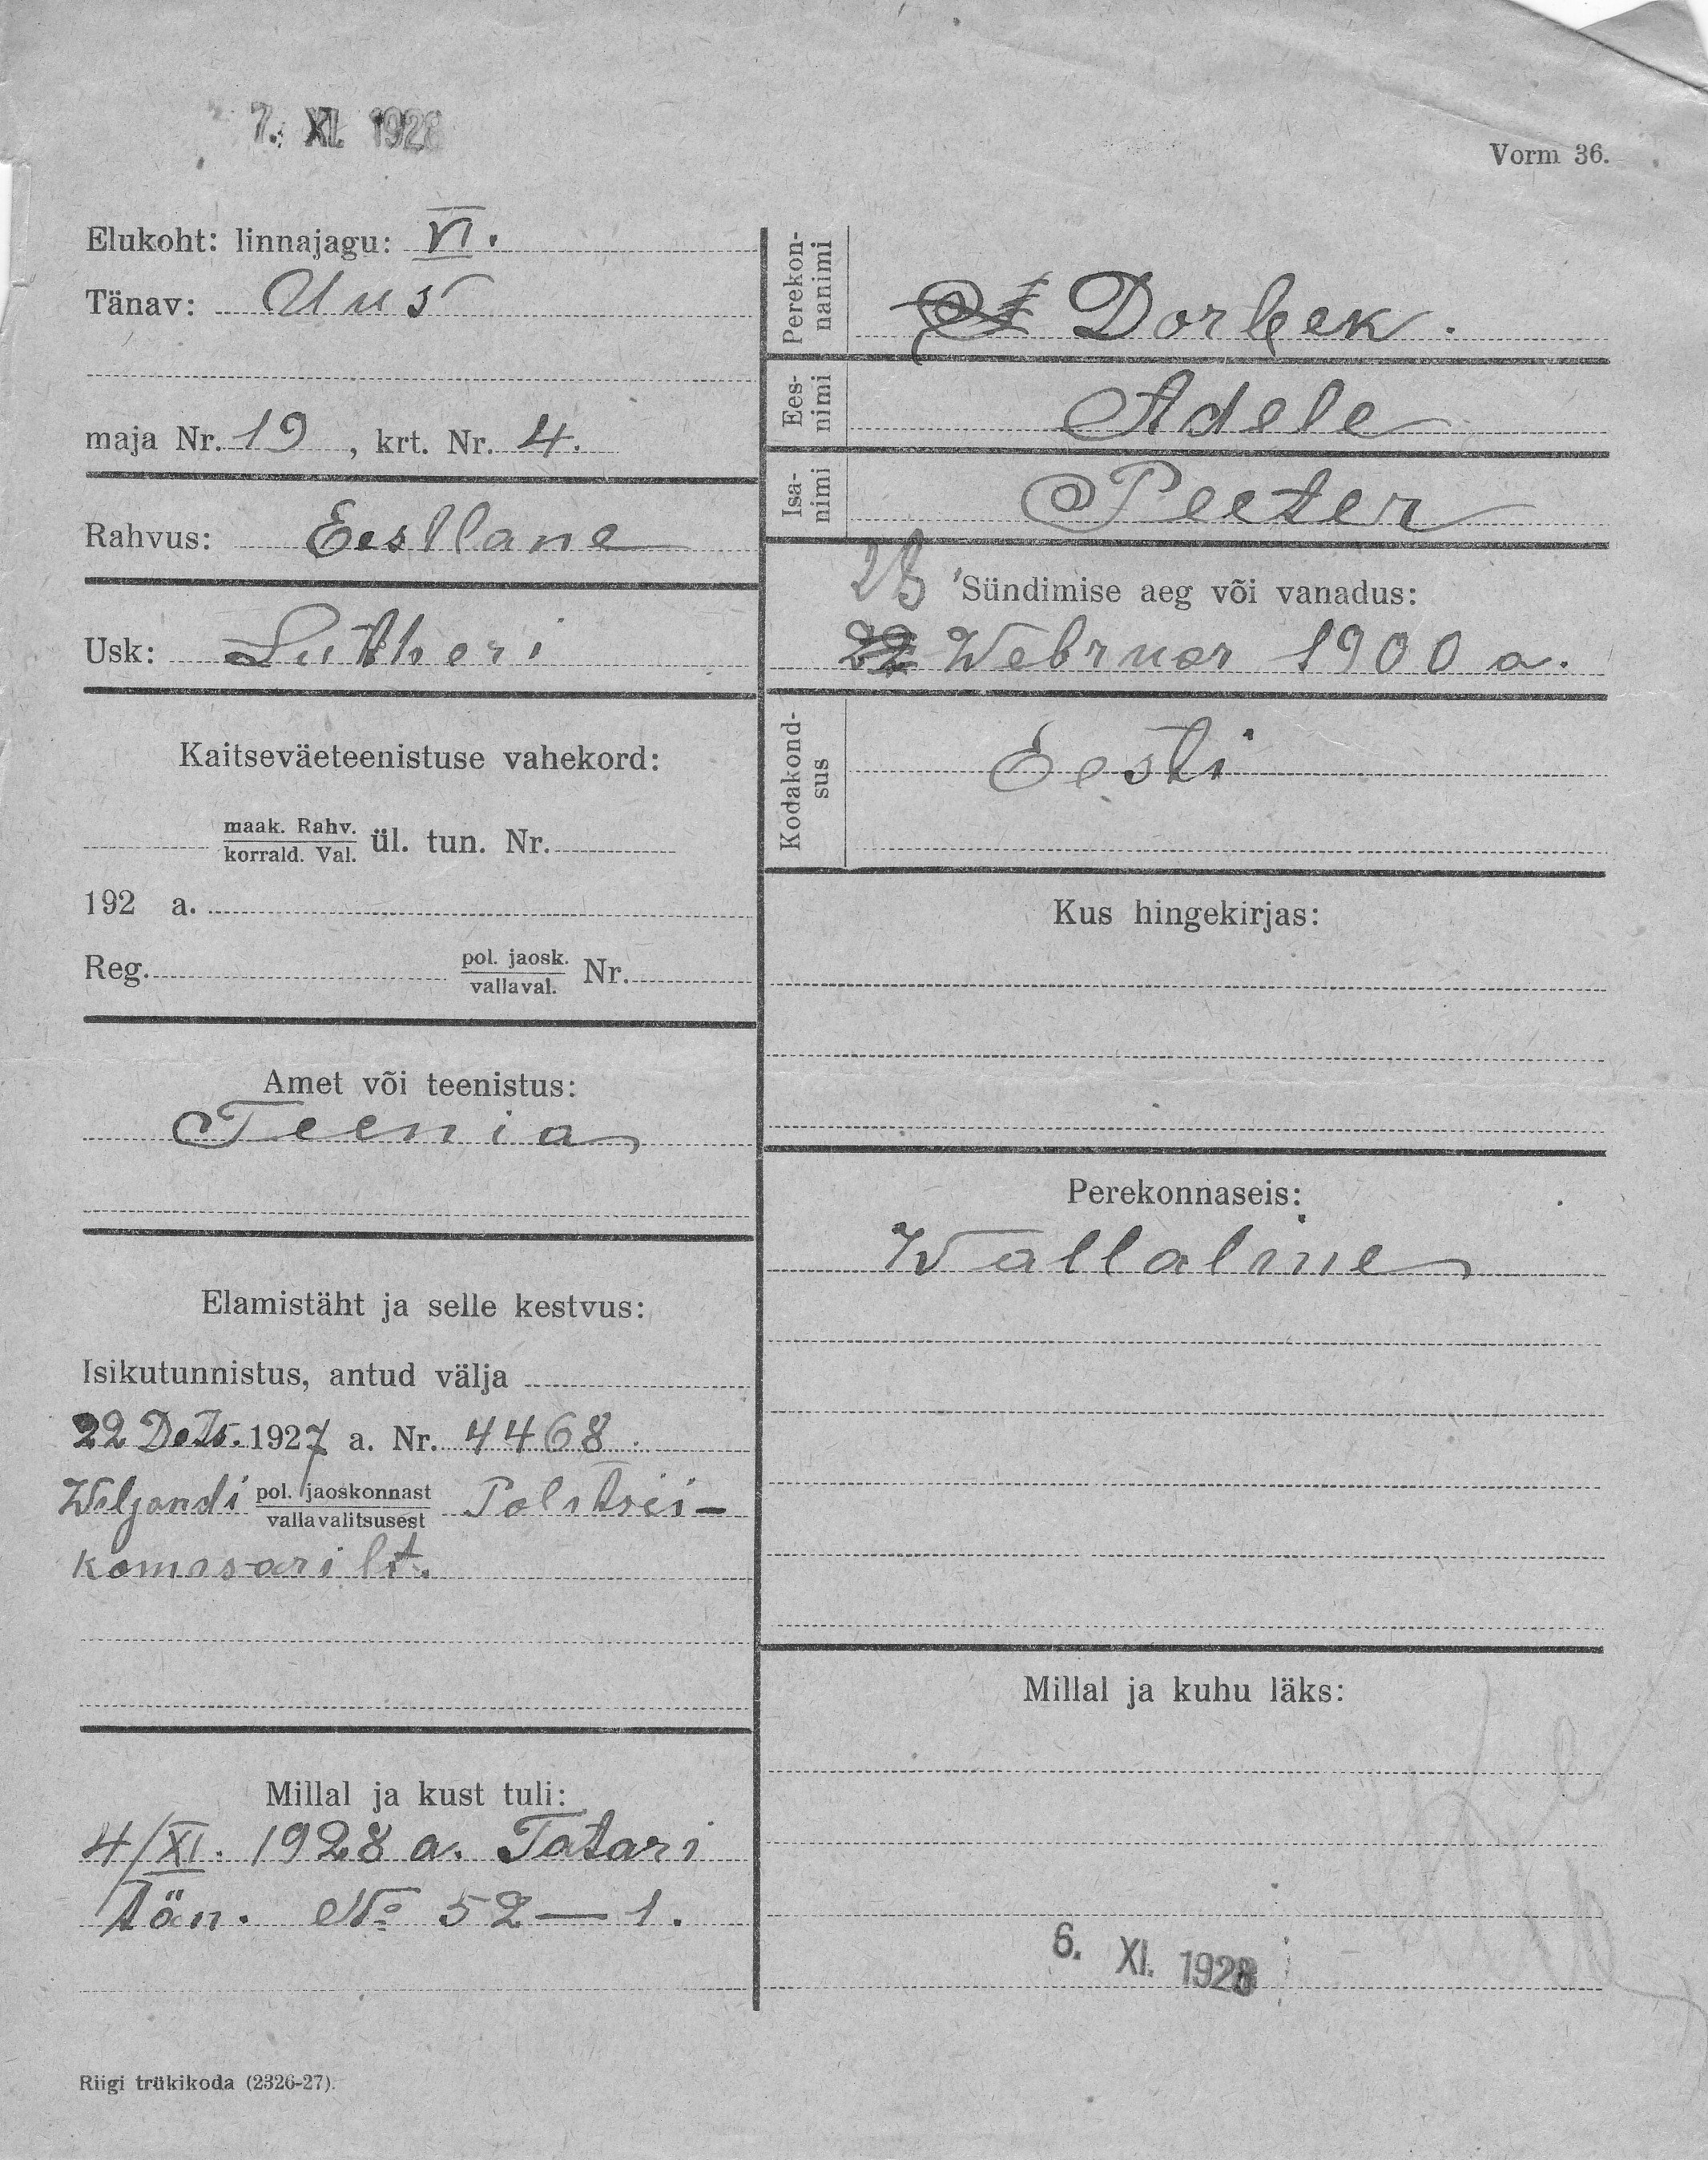 7. XI. 1928
Vorm 36.
Elukoht: linnajagu: VI.
Tänav: Uus
maja Nr. 19, krt. Nr. 4.
Rahvus: Eestlane
Usk: Lutheri
Kaitseväeteenistuse vahekord:
maak. Rahv.
korrald. Val. ül. tun. Nr.
192 a.
Reg. pol. jaosk.
vallaval. Nr.
Amet või teenistus:
Teenia
Elamistäht ja selle kestvus:
Isikutunnistus, antud välja
22 Dets. 1927 a. Nr. 4468
Wiljandi pol. jaoskonnast
vallavalitsusest Politsei-
komisarilt.
Millal ja kust tuli:
4/XI. 1928 a. Tatari
tän. № 52—1.
Riigi trükikoda (2326-27).
Perekon-
nanimi
Dorbek.
Ees-
nimi
Adele
Isa-
nimi
Peeter
Sündimise aeg või vanadus:
28
22 Webruar 1900 a.
Kodakond-
sus
Eesti
Kus hingekirjas:
Perekonnaseis:
Wallaline
Millal ja kuhu läks:
6. XI. 1928